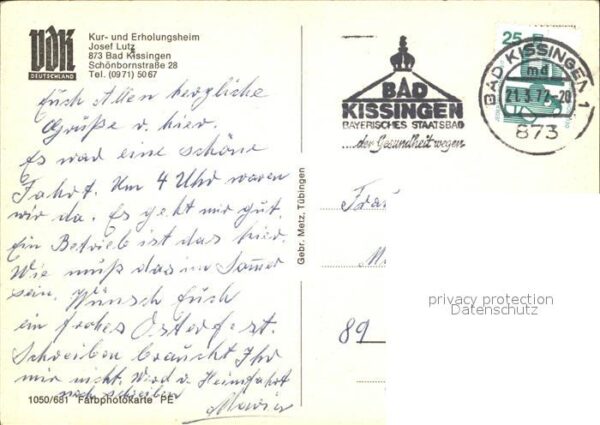 VDK
DEUTSCHLAND
Kur- und Erholungsheim
Josef Lutz
873 Bad Kissingen
Schönbornstraße 28
Tel. (0971) 5067
Euch Allen herzliche
Grüße v. hier.
Es war eine schöne
Fahrt. Um 4 Uhr waren
wir da. Es geht mir gut.
Ein Betrieb ist das hier.
Wie muß das im Sommer
sein. Wünsch Euch
ein frohes Osterfest.
Schreiben braucht Ihr
mir nicht. Wird v. Heimfahrt
noch schreiben
Maria
1050/681 Farbphotokarte PE
Gebr. Metz, Tübingen
BAD
KISSINGEN
BAYERISCHES STAATSBAD
...der Gesundheit wegen
25
BAD KISSINGEN 1
md
-20
873
Frau
89
privacy protection
Datenschutz